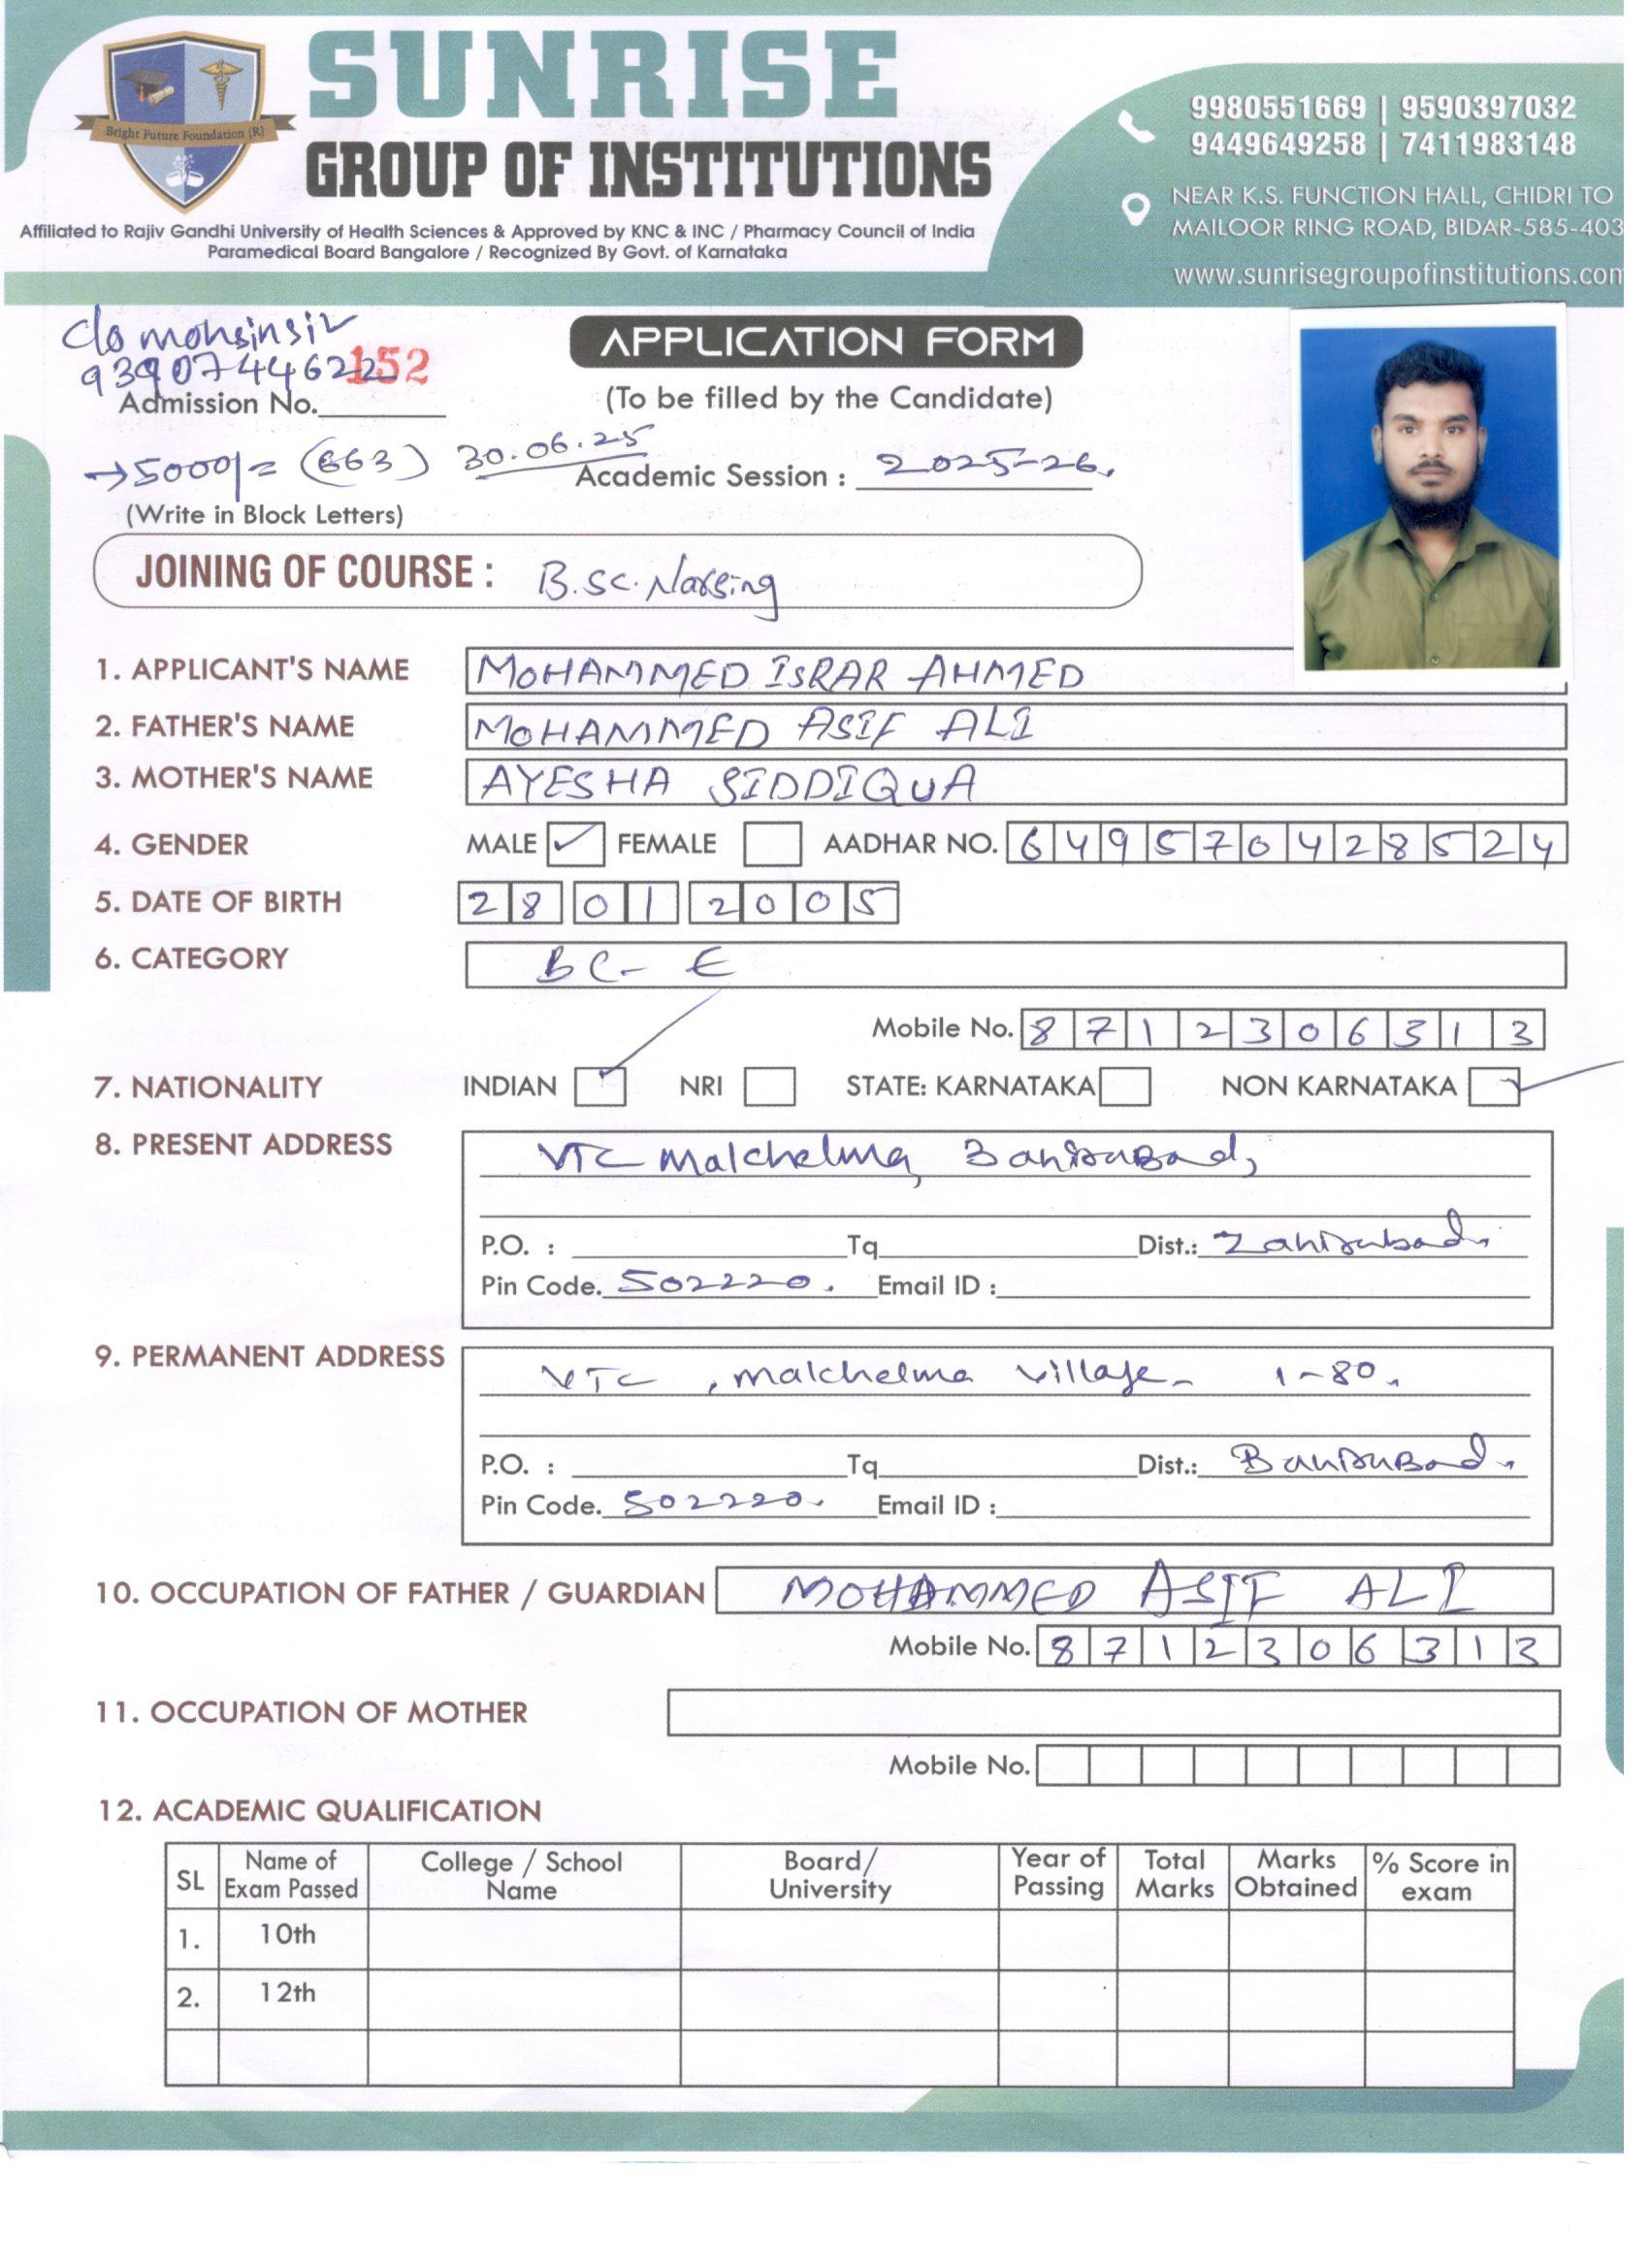 SUNRISE
GROUP OF INSTITUTIONS
Bright Future Foundation (R)
Affiliated to Rajiv Gandhi University of Health Sciences & Approved by KNC & INC / Pharmacy Council of India
Paramedical Board Bangalore / Recognized By Govt. of Karnataka
9980551669 | 9590397032
9449649258 | 7411983148
NEAR K.S. FUNCTION HALL, CHIDRI TO
MAILOOR RING ROAD, BIDAR-585-403
www.sunrisegroupofinstitutions.com
C/o mohsinsir
9390744622
152
Admission No.
APPLICATION FORM
(To be filled by the Candidate)
→5000/= (663) 30.06.25
Academic Session : 2025-26.
(Write in Block Letters)
JOINING OF COURSE : B.sc. Nursing
1. APPLICANT'S NAME MOHAMMED ISRAR AHMED
2. FATHER'S NAME MOHAMMED ASIF ALI
3. MOTHER'S NAME AYESHA SIDDIQUA
4. GENDER MALE ✓ FEMALE AADHAR NO. 649570428524
5. DATE OF BIRTH 28 01 2005
6. CATEGORY BC- E
Mobile No. 8712306313
7. NATIONALITY INDIAN ✓ NRI STATE: KARNATAKA NON KARNATAKA ✓
8. PRESENT ADDRESS VTC Malchelma,
P.O. : Tq Dist.: Zahirabad.
Pin Code. 502220. Email ID :
9. PERMANENT ADDRESS VTC , malchelma village- 1-80.
P.O. : Tq Dist.:
Pin Code. 502220. Email ID :
10. OCCUPATION OF FATHER / GUARDIAN MOHAMMED ASIF ALI
Mobile No. 8712306313
11. OCCUPATION OF MOTHER
Mobile No.
12. ACADEMIC QUALIFICATION
SL Name of Exam Passed College / School Name Board/ University Year of Passing Total Marks Marks Obtained % Score in exam
1. 10th
2. 12th